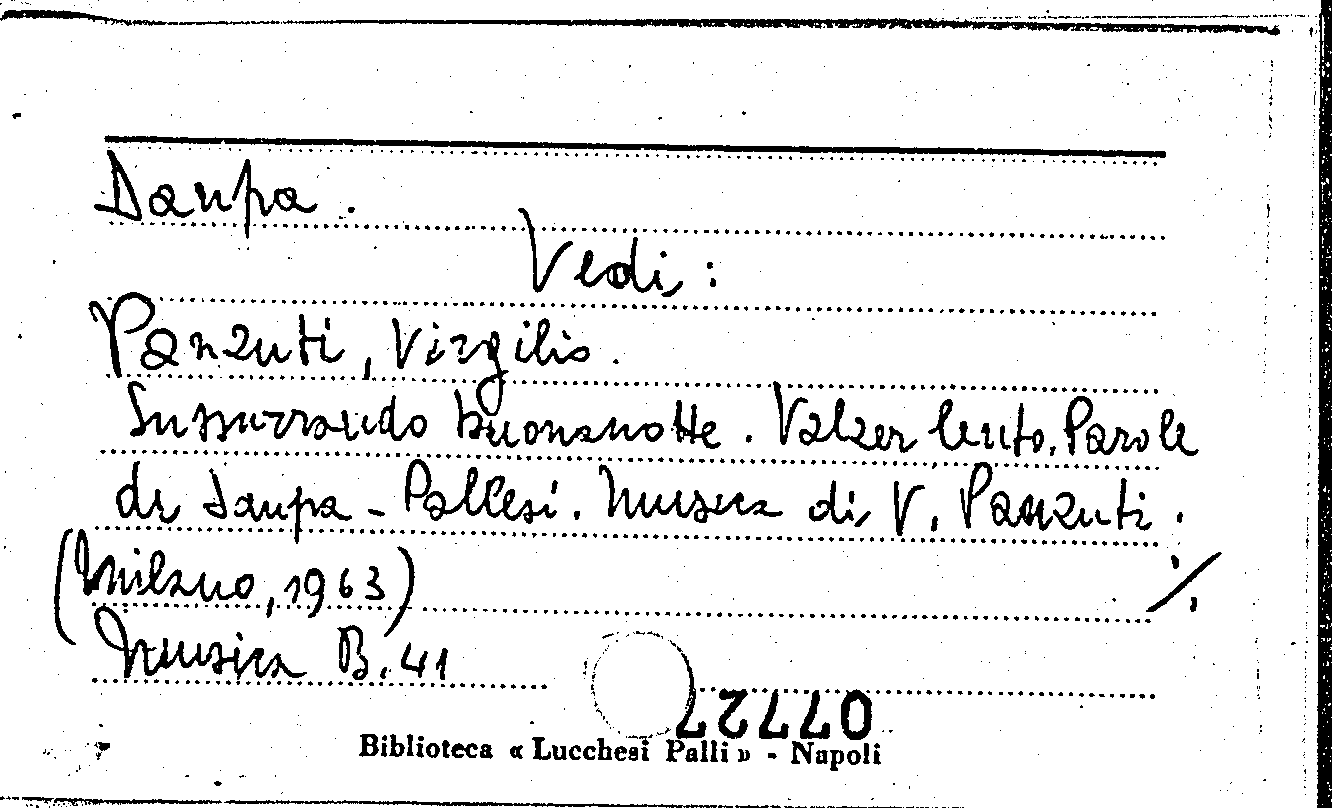 Daupa.
Vedi:
Panzuti, Virgilio.
Sussurrando buonanotte. Valzer lento. Parole
di Daupa - Pallesi. Musica di V. Panzuti.
(Milano, 1963) ./.
Musica B. 41
07727
Biblioteca « Lucchesi Palli » - Napoli